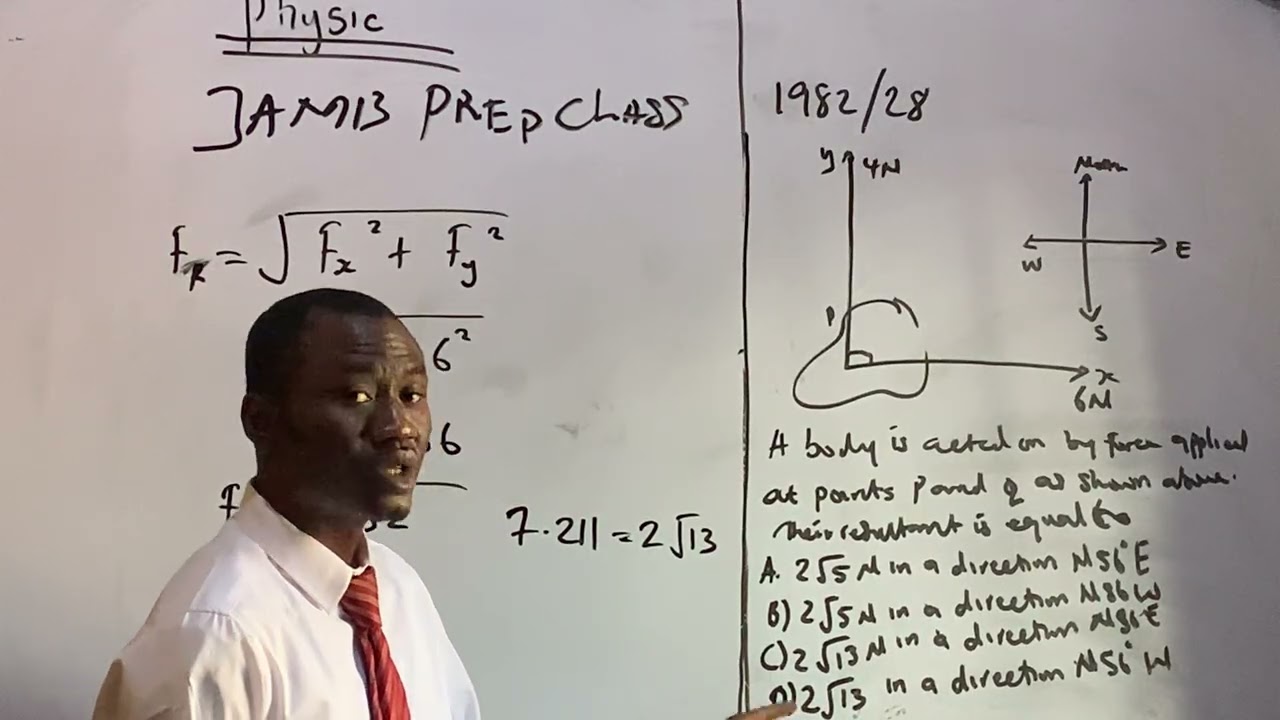 Physic
JAMB PREP CLASS
F_R = √F_x² + F_y²
6²
6
7.211 = 2√13
1982/28
y 4N
P
x
6N
W E
S
A body is acted on by force applied
at points P and Q as shown above.
Their resultant is equal to
A. 2√5 N in a direction N56°E
B) 2√5 N in a direction W
C) 2√13 N in a direction E
D) 2√13 in a direction N56° W